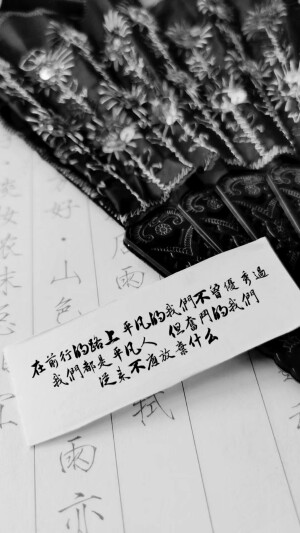 在前行的路上 平凡的我們不曾優秀過
我們都是平凡人 但奮鬥的我們
從来不曾放棄什么
雨
軾
好·山色
雨亦